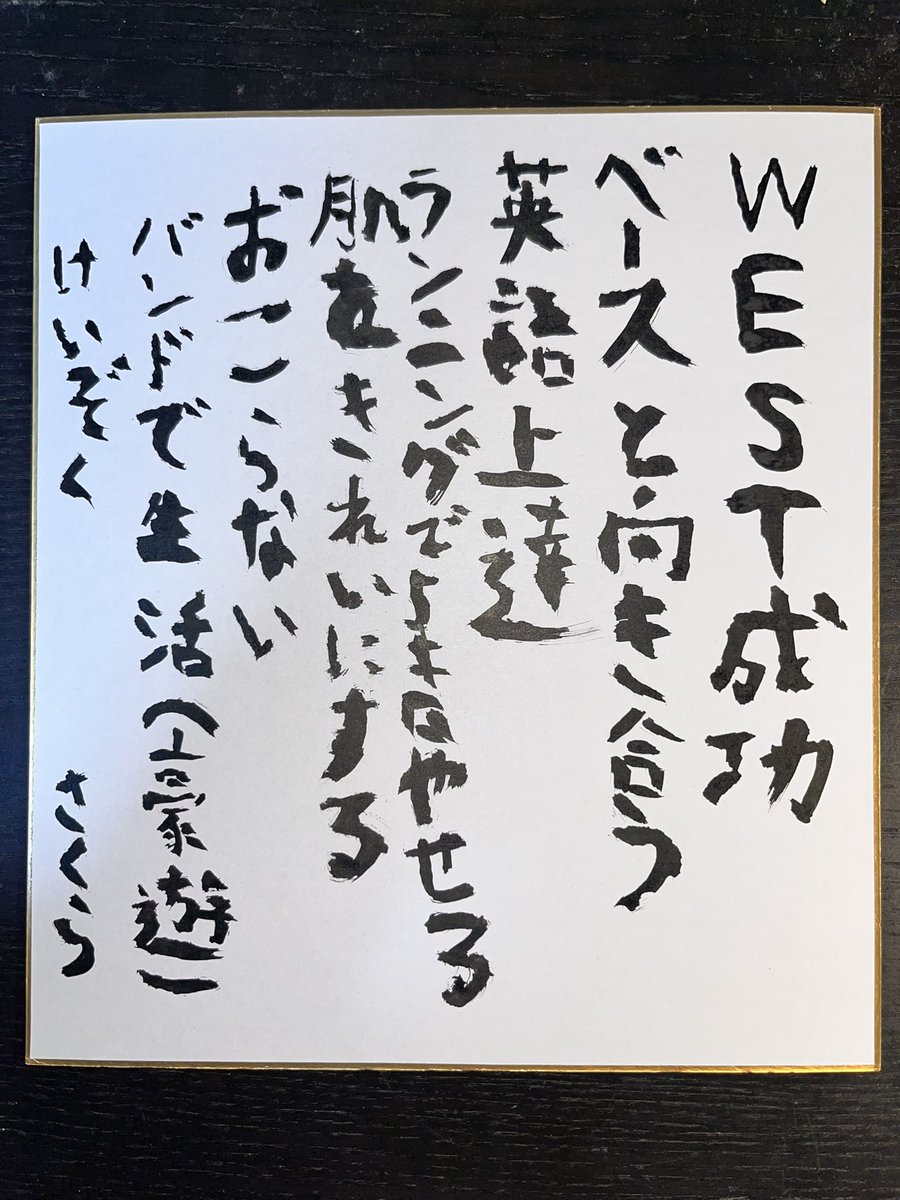 WEST成功
ベースと向き合う
英語上達
ランニングで5キロやせる
肌をきれいにする
おこらない
バンドで生活(豪遊)
けいぞく さくら